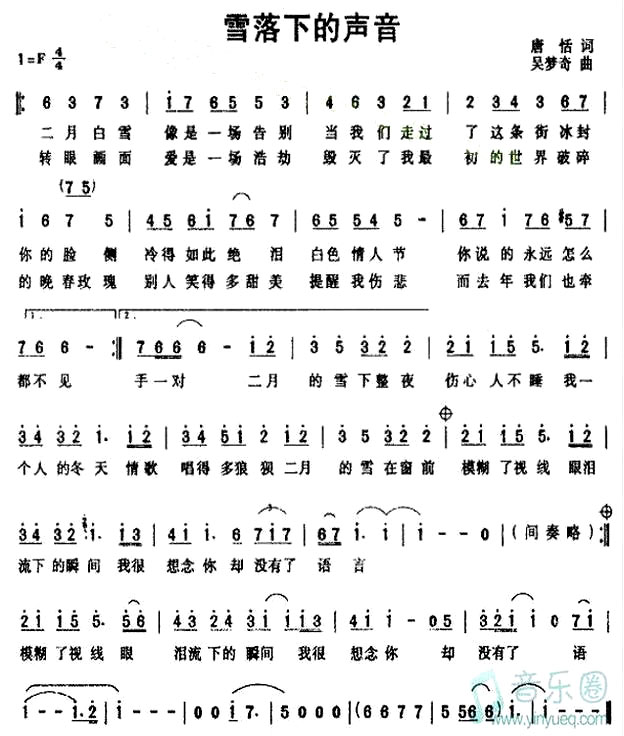 雪落下的声音
1=F 4/4
唐恬 词
吴梦奇 曲
6 3 7 3 | i7 65 5 3 | 4 6 3 21 | 2 34 3 67 |
二月白雪 像是一场告别 当我们走过 了这条街冰封
转眼画面 爱是一场浩劫 毁灭了我最 初的世界破碎
(75)
i 6 7 5 | 45 6i 76 7 | 65 54 5 - | 67 i 76 #57 |
你的脸侧 冷得如此绝泪 白色情人节 你说的永远怎么
的晚春玫瑰 别人笑得多甜美 提醒我伤悲 而去年我们也牵
1. 2.
76 6 - :|| 766 6 - i2 | 3 5 32 2 | 2i i5 5. i2 |
都不见 手一对 二月 的雪下整夜 伤心人不睡我一
34 32 i. i2 | 34 32 i i2 | 3 5 32 2 | 2i i5 5. i2 |
个人的冬天情歌 唱得多狼狈二月 的雪在窗前 模糊了视线眼泪
流下的瞬间我很 想念你却没有了 语言
(间奏略)
2i i5 5. 56 | 34 32 3i ii3 | 4i i - 05 | 32i i 0 7i |
模糊了视线眼 泪流下的瞬间 我很 想念你 却 没有了 语
i - - i.2 | i - - - | 0 0 0i 7. | 5 0 0 0 | (6 6 7 7 | 5 566 6 - )
音乐圈
www.yinyueq.com